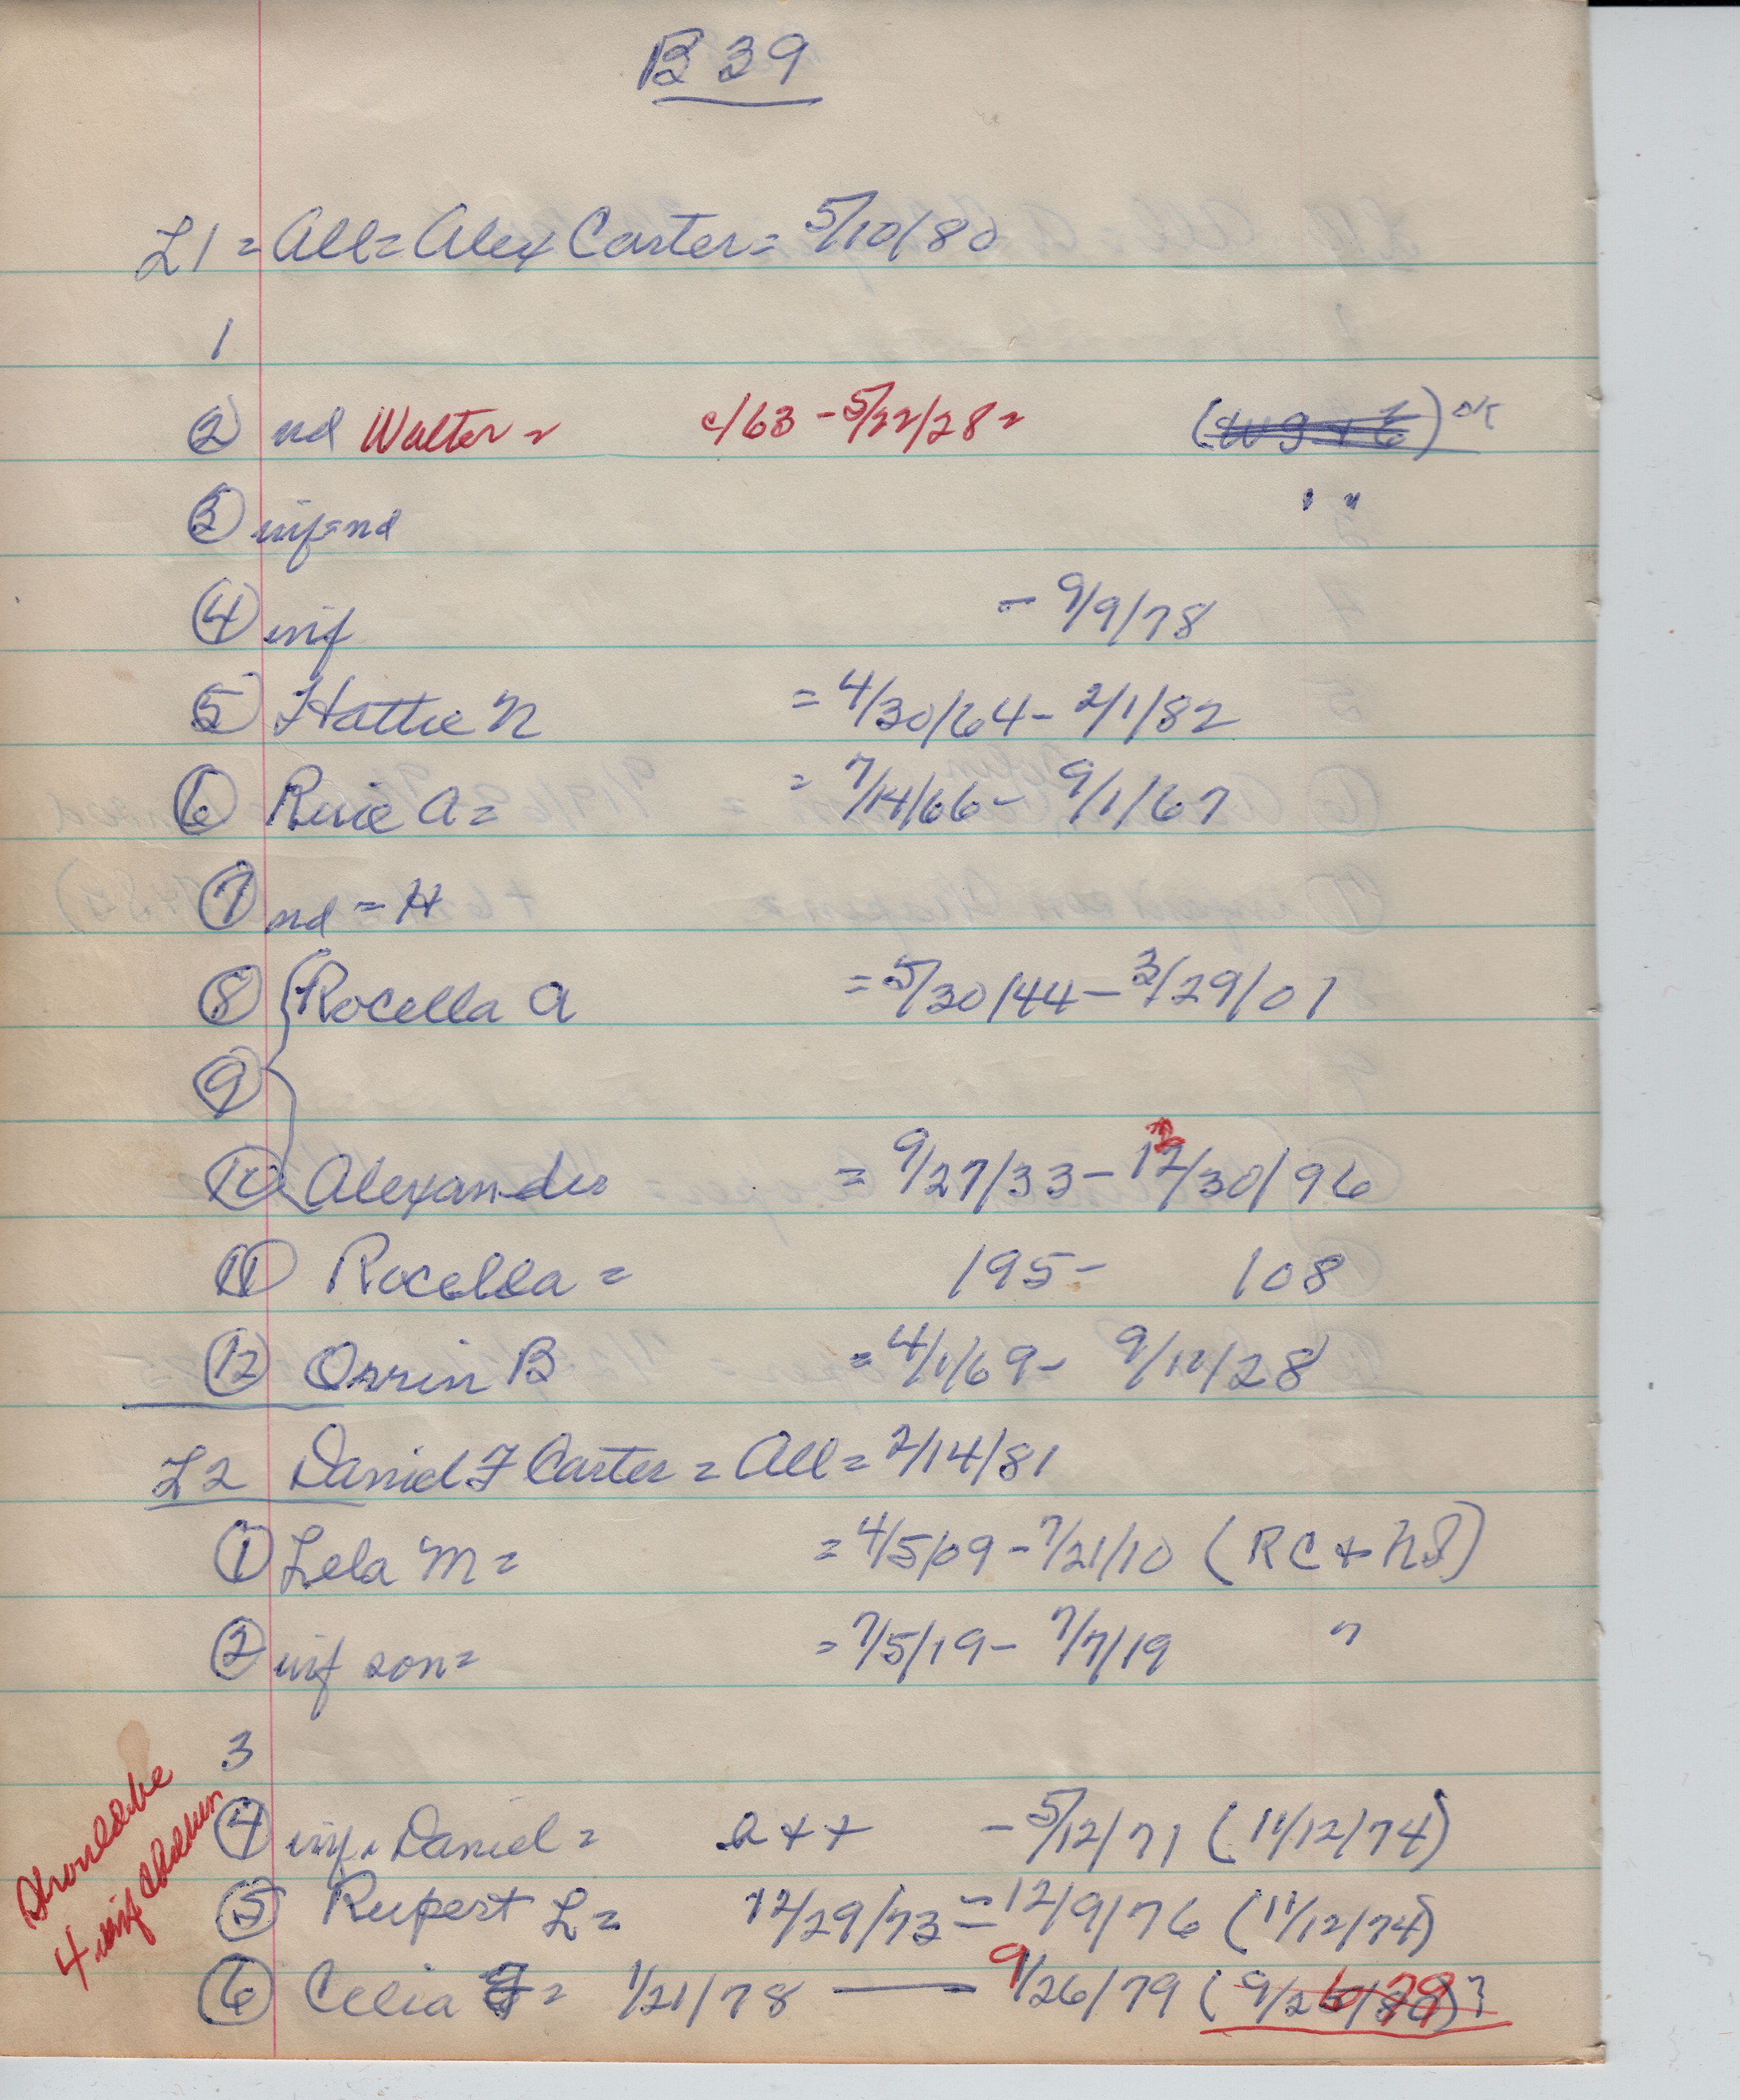 B 39
L1 = All = Alex Carter = 5/10/80
1
2 nd Walter = c/63 - 5/22/28 = ( ) OK
3 inf = nd " "
4 inf - 9/9/78
5 Hattie N = 4/30/64 - 2/1/82
6 A = = 7/14/66 - 9/1/67
7 nd = H
8 Rocella A = 5/30/44 - 3/29/01
9
10 Alexander = 9/27/33 - 12/30/96
11 Rocella = 195 - 108
12 Orrin B = 4/1/69 - 9/12/28
L2 Daniel F Carter = All = 2/14/81
1 Lela M = = 4/5/09 - 7/21/10 (RC + NS)
2 inf son = = 7/5/19 - 7/7/19 "
3
Should be
4 inf children
4 inf. Daniel = - 5/12/71 (11/12/74)
5 Rupert L = 12/29/73 = 12/9/76 (11/12/74)
6 Celia F = 1/21/78 — 9/26/79 (9/26/79)?